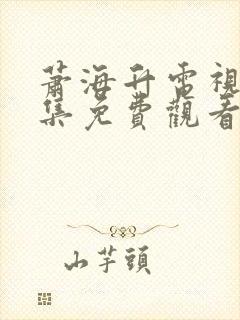 蕭海升電視
集免費觀看
山芋頭